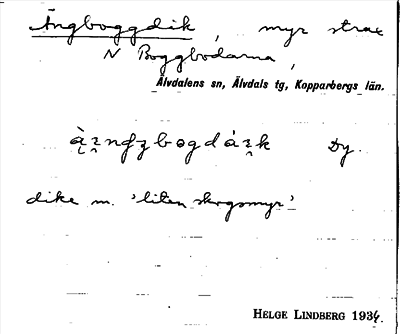 Ängboggdik, myr strax
N Boggbodarna,
Älvdalens sn, Älvdals tg, Kopparbergs län.
Dy.
dike m. 'liten skogsmyr'
HELGE LINDBERG 1934.